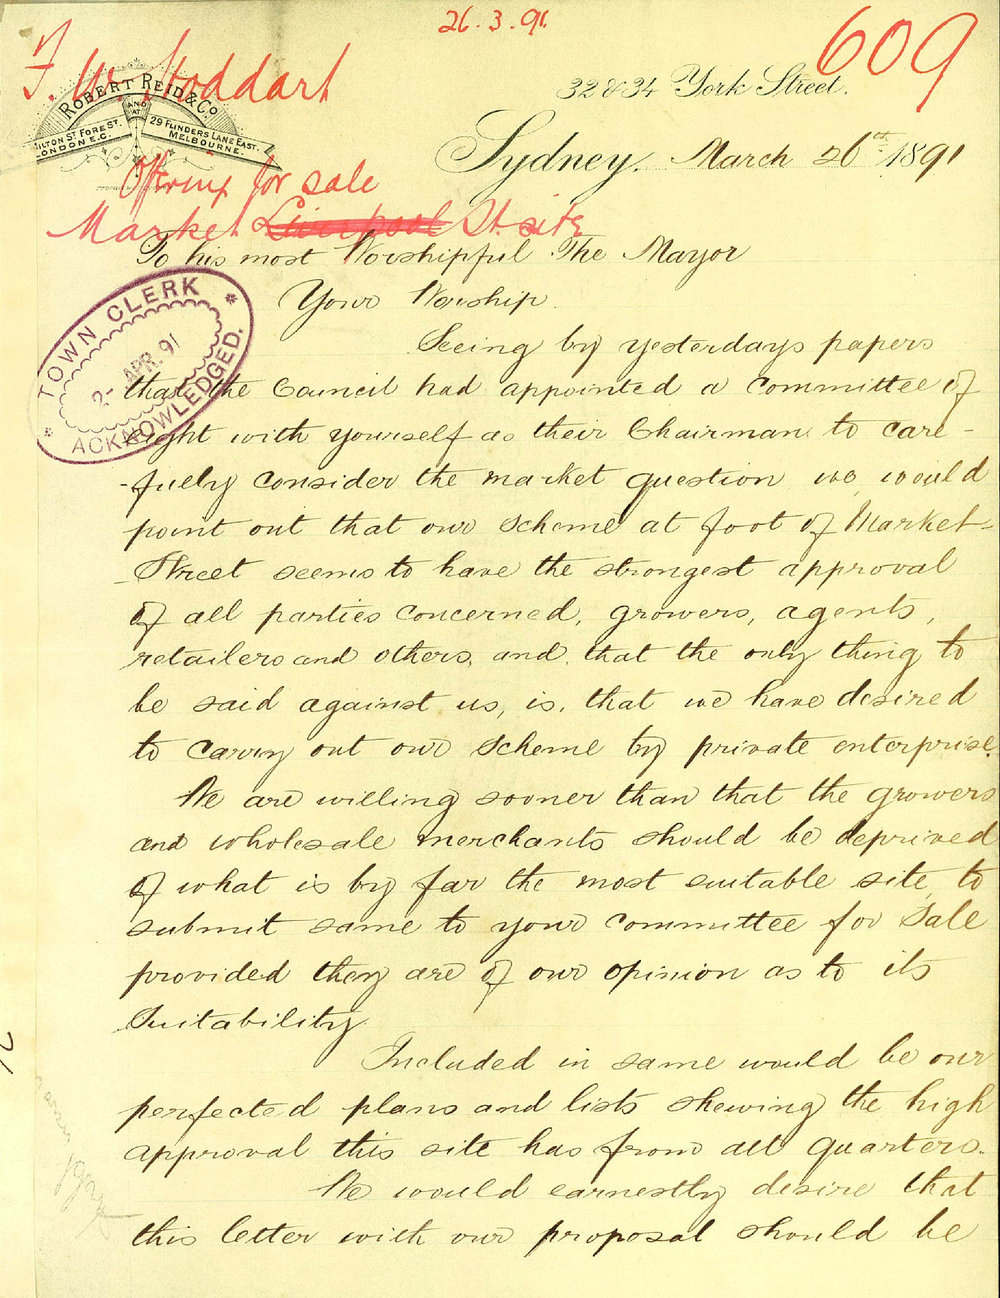 26.3.91.
609
F. W. Stoddart
ROBERT REID & Co
AND
AT
MILTON ST FORE ST.
LONDON E.C.
29 FLINDERS LANE EAST.
MELBOURNE.
32 & 34 York Street.
Sydney. March 26th 1891
Offering for sale
Market Liverpool St. site
To his most Worshipful The Mayor
Your Worship.
TOWN CLERK
2- APR. 91
ACKNOWLEDGED.
Seeing by yesterdays papers
that the Council had appointed a committee of
eight with yourself as their Chairman to care-
-fully consider the market question we would
point out that our scheme at foot of Market-
-Street seems to have the strongest approval
of all parties concerned, growers, agents,
retailers and others, and that the only thing to
be said against us, is, that we have desired
to carry out our scheme by private enterprise.
We are willing sooner than that the growers
and wholesale merchants should be deprived
of what is by far the most suitable site, to
submit same to your committee for Sale
provided they are of our opinion as to its
Suitability.
Included in same would be our
perfected plans and lists shewing the high
approval this site has from all quarters.
We would earnestly desire that
this letter with our proposal should be